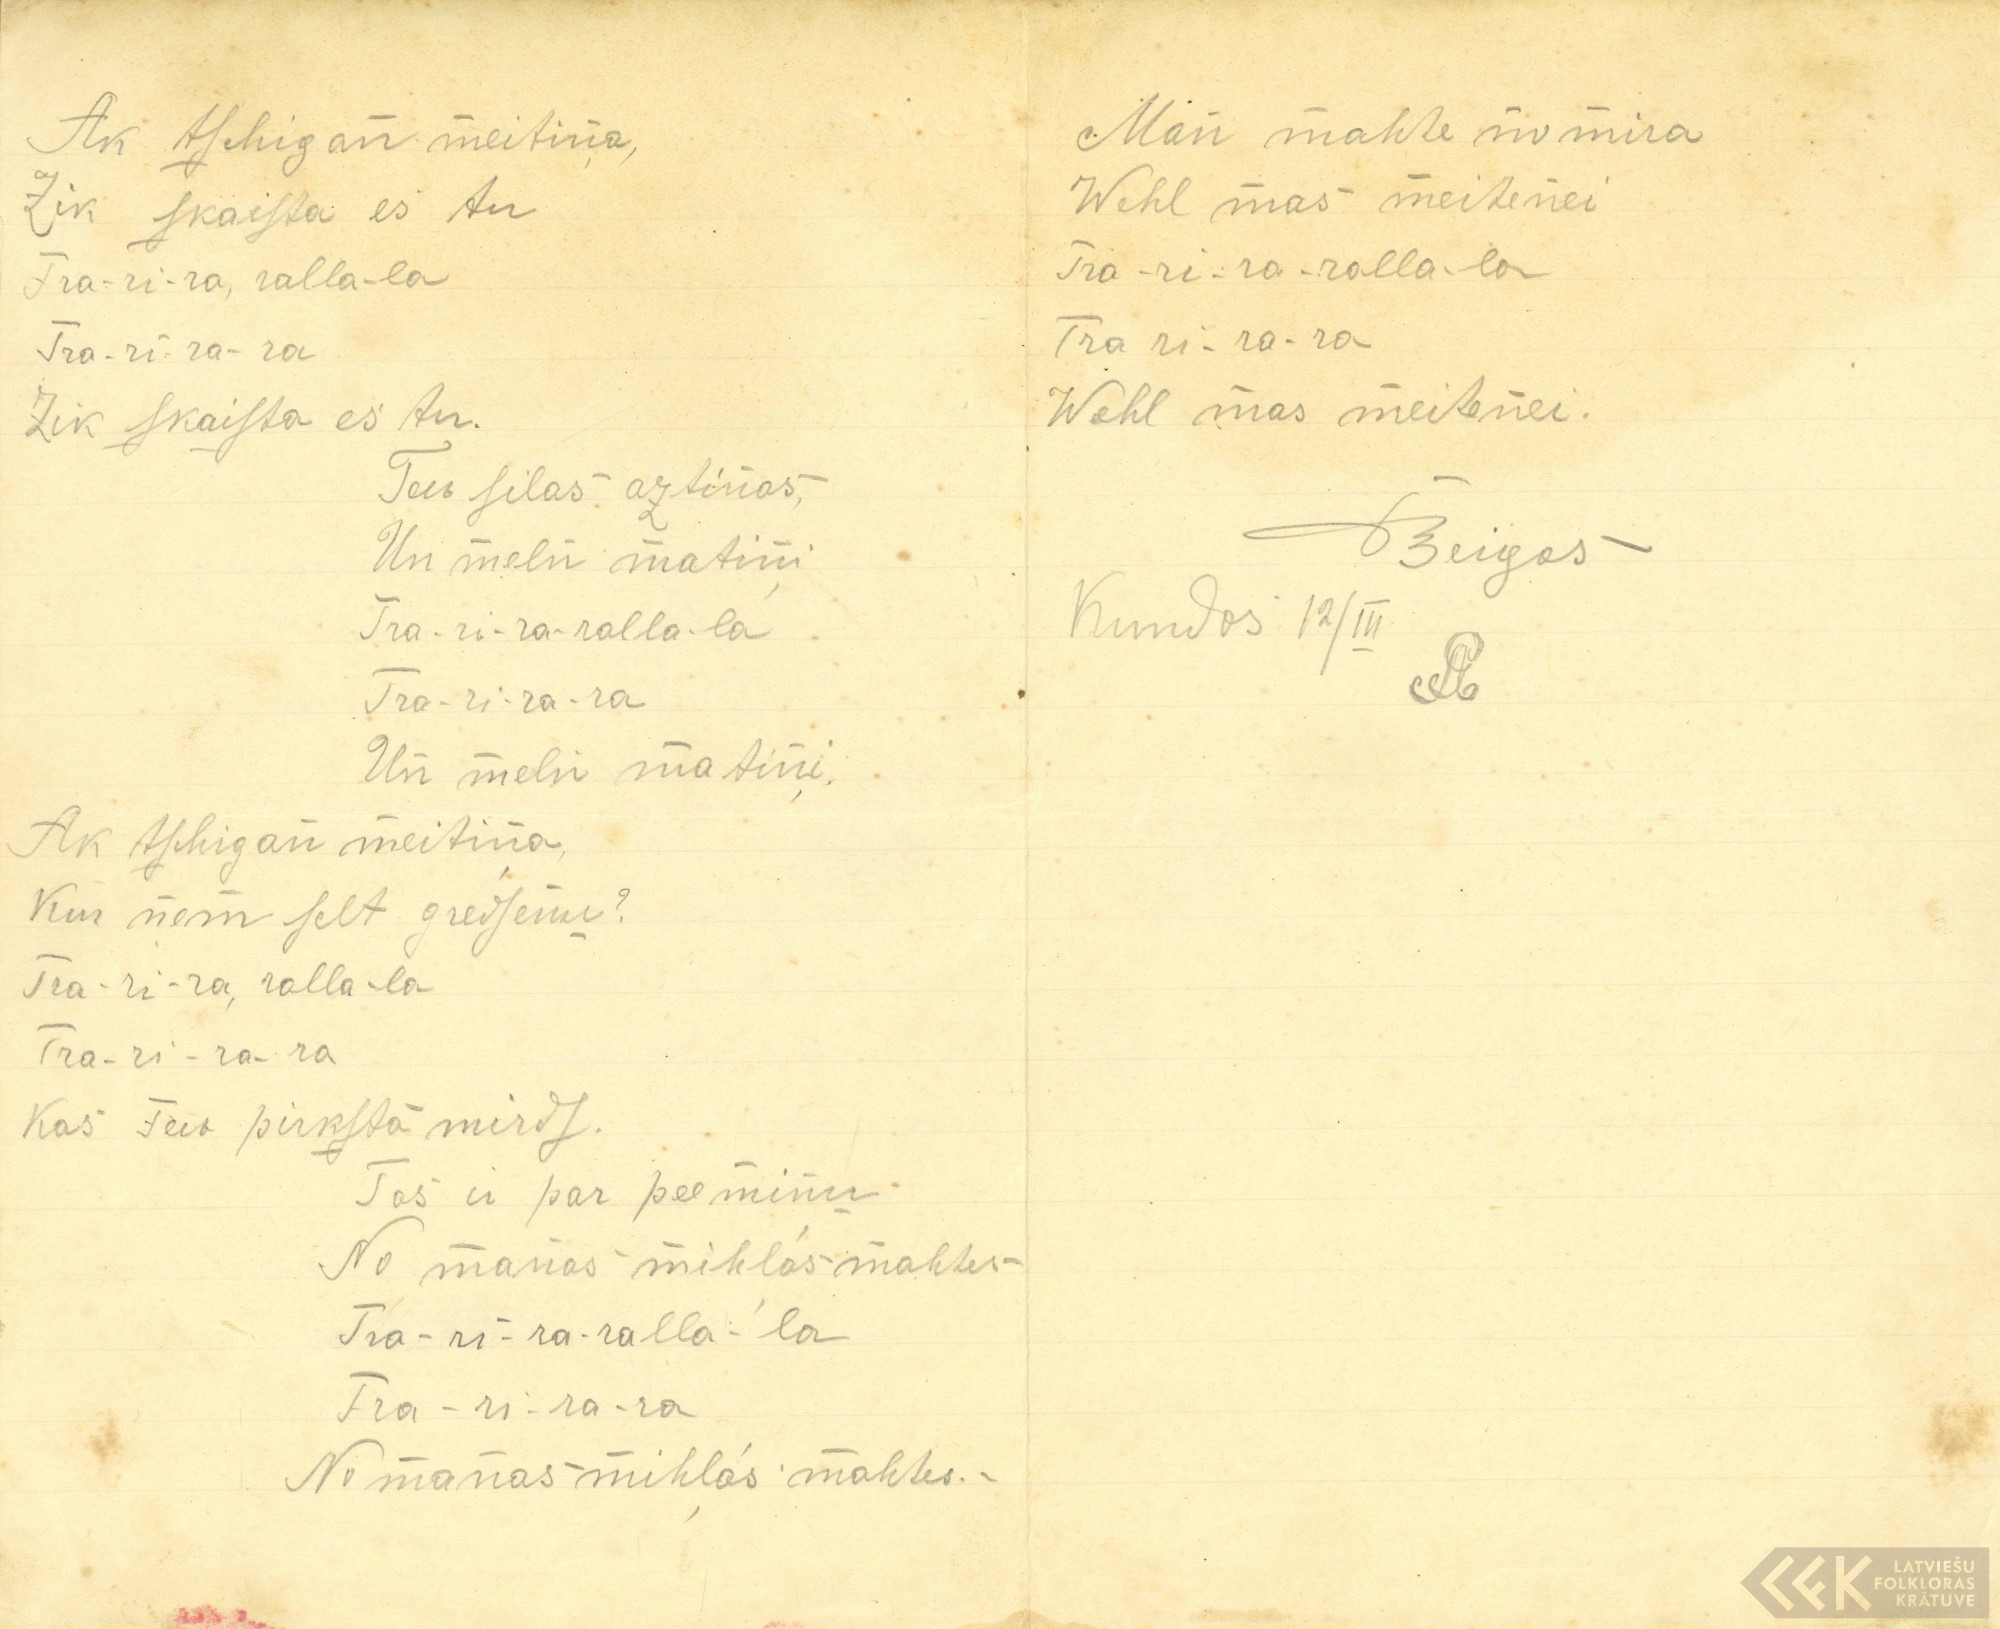 Ak tſchigan meitiņa,
Zik ſkaiſta es tu
Tra-ri-ra, ralla-la
Tra-ri-ra-ra
Zik ſkaiſta es tu.
Tew ſilas aztiņas,
Un meln matiņi
Tra-ri-ra-ralla-la
Tra-ri-ra-ra
Un meln matiņi.
Ak tſchigan meitiņa,
Kur ņem ſelt gredſenu?
Tra-ri-ra, ralla-la
Tra-ri-ra-ra
Kas Tew pirkſtā mirdſ.
Tas ir par peeminu
No manas mihļās mahtes
Tra-ri-ra-ralla-la
Tra-ri-ra-ra
No manas mihļās mahtes.
Man mahte nomira
Wehl mas meitenei
Tra-ri-ra-ralla-la
Tra ri-ra-ra
Wehl mas meitenei.
Beigas
Kundos 12/III
LATVIEŠU
FOLKLORAS
KRĀTUVE